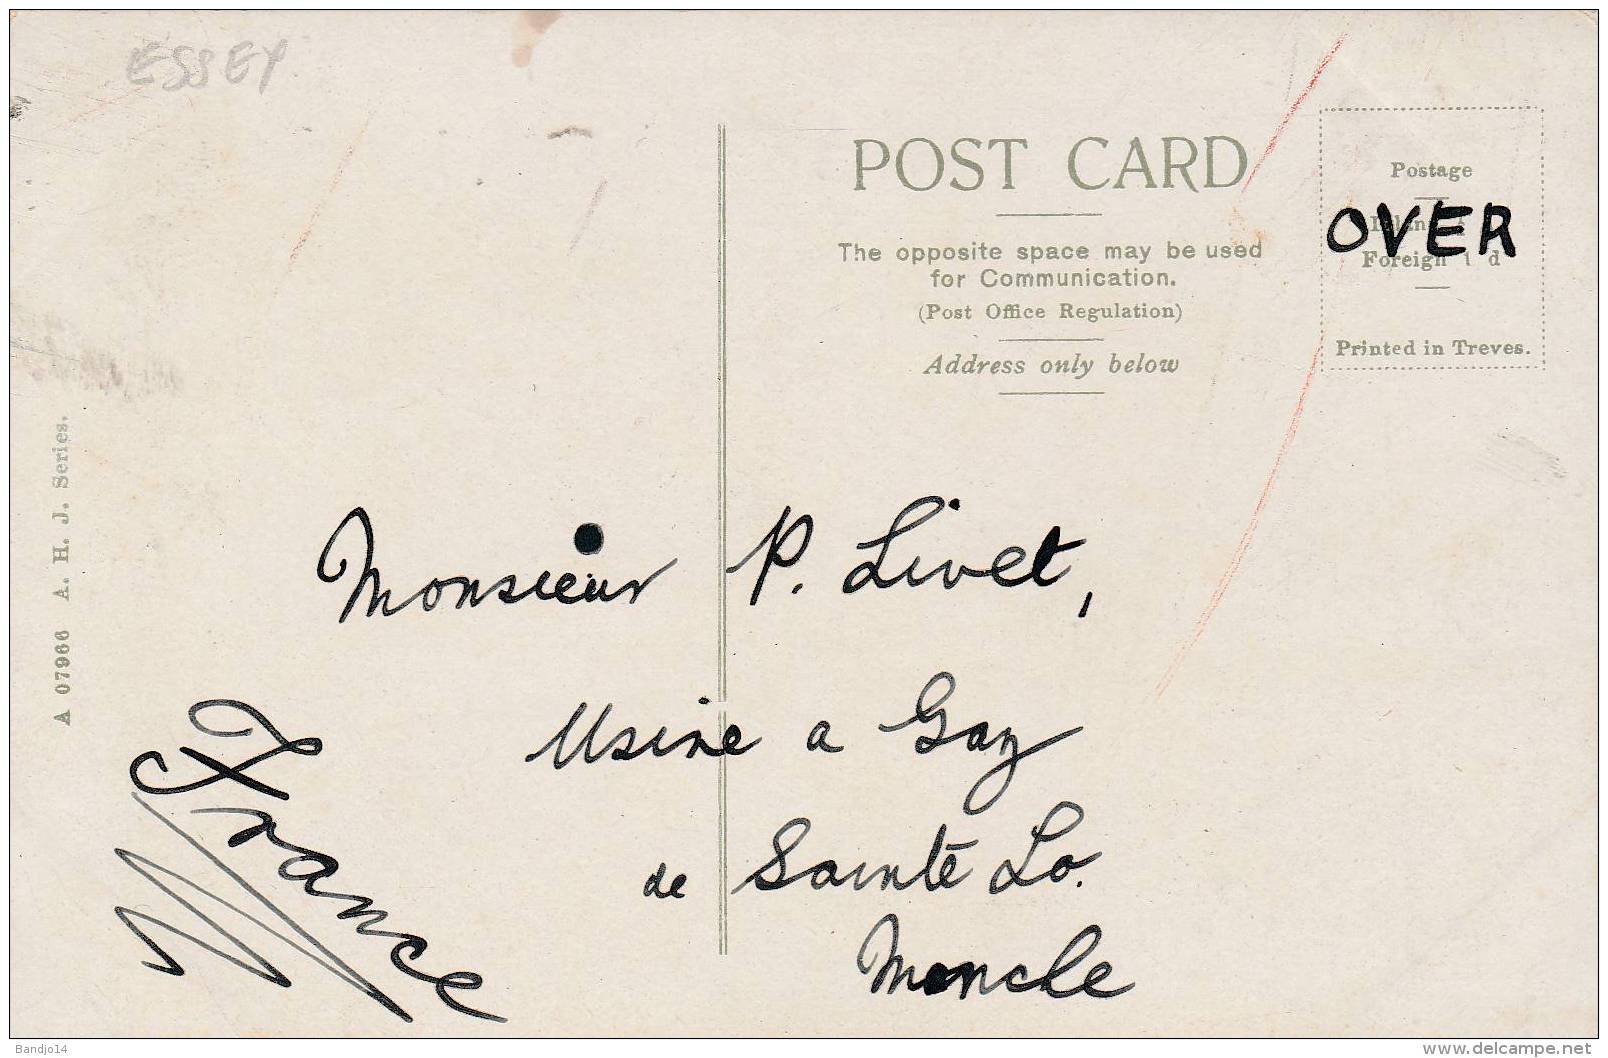 ESSEY
POST CARD
The opposite space may be used
for Communication.
(Post Office Regulation)
Address only below
Postage
OVER
Foreign 1 d
Printed in Treves.
A 07966 A. H. J. Series.
Monsieur P. Livet,
Usine a Gaz
de Sainte Lo.
Manche
France
Bandjo14
delcampe.net